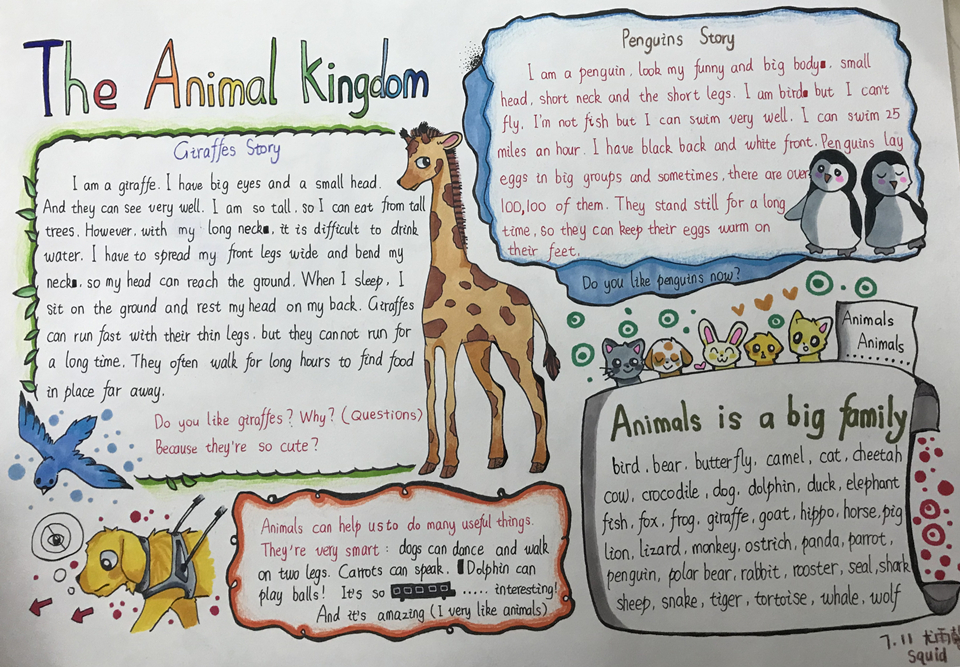 The Animal Kingdom
Giraffes Story
I am a giraffe. I have big eyes and a small head.
And they can see very well. I am so tall, so I can eat from tall
trees. However, with my long neck, it is difficult to drink
water. I have to spread my front legs wide and bend my
neck, so my head can reach the ground. When I sleep, I
sit on the ground and rest my head on my back. Giraffes
can run fast with their thin legs, but they cannot run for
a long time. They often walk for long hours to find food
in place far away.
Do you like giraffes? Why? (Questions)
Because they're so cute?
Penguins Story
I am a penguin, look my funny and big body, small
head, short neck and the short legs. I am bird but I can't
fly. I'm not fish but I can swim very well. I can swim 25
miles an hour. I have black back and white front. Penguins lay
eggs in big groups and sometimes, there are over
100,100 of them. They stand still for a long
time, so they can keep their eggs warm on
their feet.
Do you like penguins now?
Animals
Animals
.........
Animals is a big family
bird, bear, butterfly, camel, cat, cheetah
cow, crocodile, dog, dolphin, duck, elephant
fish, fox, frog, giraffe, goat, hippo, horse, pig
lion, lizard, monkey, ostrich, panda, parrot,
penguin, polar bear, rabbit, rooster, seal, shark
sheep, snake, tiger, tortoise, whale, wolf
Animals can help us to do many useful things.
They're very smart: dogs can dance and walk
on two legs. Carrots can speak. Dolphin can
play balls! It's so ..... interesting!
And it's amazing (I very like animals)
7.11
Squid